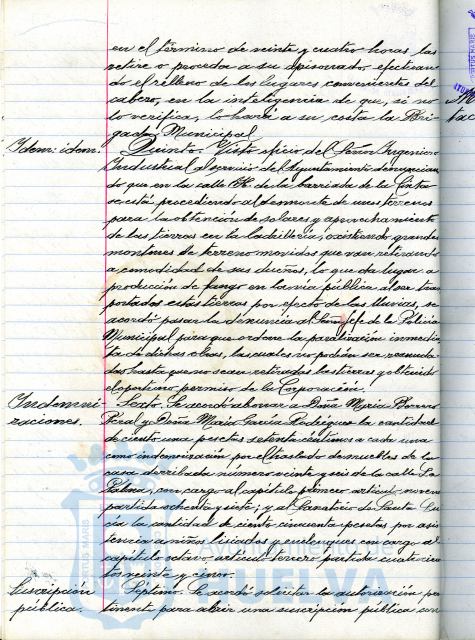 en el término de veinte y cuatro horas las
retire o proceda a su apisonado efectuan-
do el relleno de los lugares convenientes del
cabezo, en la inteligencia de que, si no
lo verifica, lo hará a su costa la Bri-
gada Municipal.
Idem: idem. Quinto. Visto oficio del Señor Ingeniero
Industrial al servicio del Ayuntamiento denuncian-
do que en la calle de la barriada de la Cinta
se está procediendo al desmonte de unos terrenos
para la obtención de solares y aprovechamiento
de las tierras en la ladrillería; existiendo grandes
montones de terreno movidos que van retirando
a comodidad de sus dueños, lo que da lugar a
producción de fango en la vía pública al ser tras-
portados estas tierras por efecto de las lluvias, se
acordó pasar la denuncia al Señor Jefe de la Policía
Municipal para que ordene la paralización inmedia-
ta de dichas obras, las cuales no podrán ser reanuda-
das hasta que no sean retiradas las tierras y obtenido
el oportuno permiso de la Corporación.
Indemni- Sexto. Se acordó abonar a Doña María Borrero
zaciones. Real y Doña María García Rodríguez la cantidad
de ciento una pesetas setenta céntimos a cada una
como indemnización por el traslado de muebles de la
casa derribada número veinte y seis de la calle La
Palma, con cargo al capítulo primero, artículo noveno
partida ochenta y siete; y al Sanatorio de Santa Lu-
cía la cantidad de ciento cincuenta pesetas por asis-
tencia a niños lisiados y con cargo al
capítulo octavo, artículo tercero partida cuatrocien-
tos veinte y cinco.
Suscripción Séptimo. Se acordó solicitar la autorización per-
pública. tinente para abrir una suscripción pública con
Ayuntamiento de
HUELVA